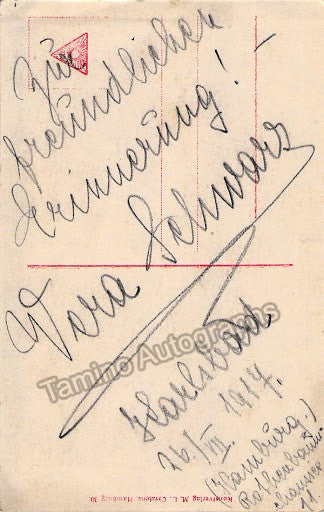 Zur
freundlichen
Erinnerung! -
Vera Schwarz
Karlsbad
26/VII. 1917.
(Hamburg.)
Rothenbaum-
chaussee
Tamino Autographs
Kunstverlag M. L. Carstens Hamburg